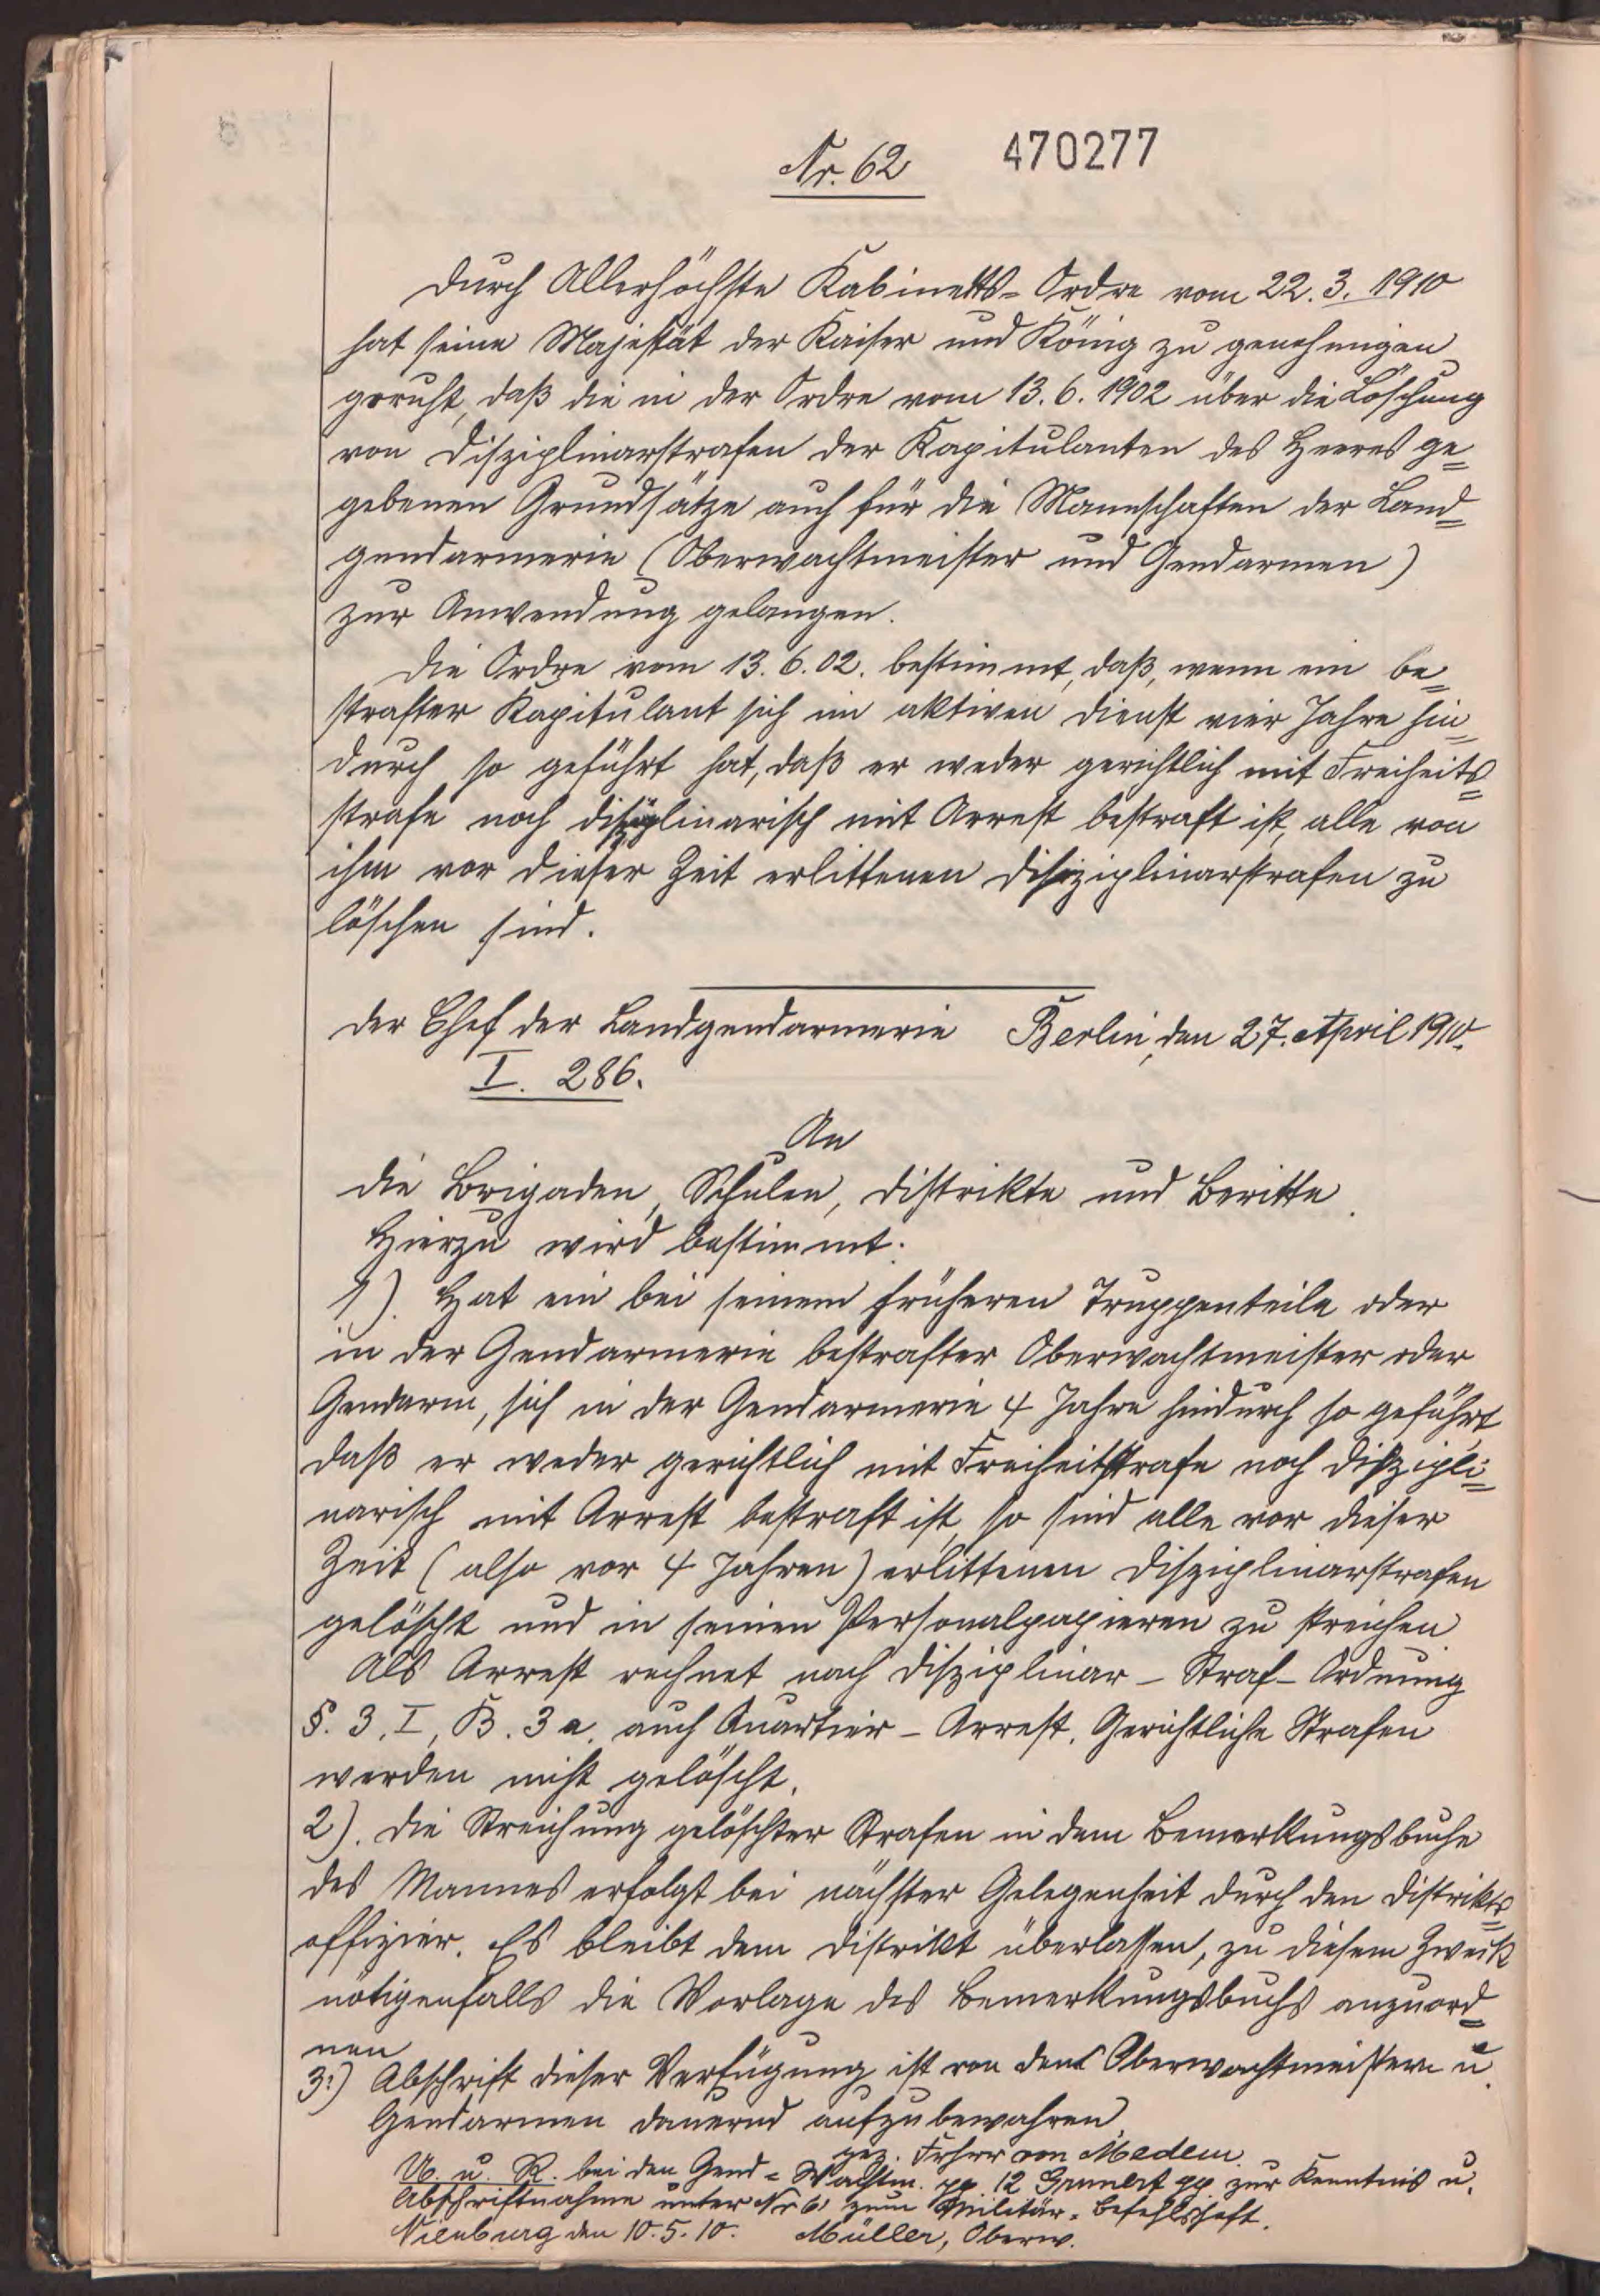 Nr. 62 470277
Durch Allerhöchste Kabinetts-Ordre vom 22.3.1910
hat seine Majestät der Kaiser und König zu genehmigen
geruht, daß die in der Ordre vom 13.6.1902 über die Löschung
von Disziplinarstrafen der Kapitulanten des Heeres ge=
gebenen Grundsätze auch für die Mannschaften der Land=
gendarmerie (Oberwachtmeister und Gendarmen)
zur Anwendung gelangen.
Die Ordre vom 13.6.02. bestimmt, daß, wenn ein be=
strafter Kapitulant sich im aktiven Dienst vier Jahre hin=
durch so geführt hat, daß er weder gerichtlich mit Freiheits=
strafe noch disziplinarisch mit Arrest bestraft ist, alle von
ihm vor dieser Zeit erlittenen Disziplinarstrafen zu
löschen sind.
Der Chef der Landgendarmerie Berlin, den 27. April 1910.
I. 286.
An
die Brigaden, Schulen, Distrikte und Beritte.
Hierzu wird bestimmt:
1). Hat ein bei seinem früheren Truppenteile oder
in der Gendarmerie bestrafter Oberwachtmeister oder
Gendarm, sich in der Gendarmerie 4 Jahre hindurch so geführt
daß er weder gerichtlich mit Freiheitsstrafe noch diszipli=
narisch mit Arrest bestraft ist, so sind alle vor dieser
Zeit (also vor 4 Jahren) erlittenen Disziplinarstrafen
gelöscht und in seinen Personalpapieren zu streichen
Als Arrest rechnet nach Disziplinar-Straf-Ordnung
§. 3, I, B. 3a. auch Quartier-Arrest. Gerichtliche Strafen
werden nicht gelöscht.
2). Die Streichung gelöschter Strafen in dem Bemerkungsbuche
des Mannes erfolgt bei nächster Gelegenheit durch den Distrikts=
offizier. Es bleibt dem Distrikt überlassen, zu diesem Zweck
nötigenfalls die Vorlage des Bemerkungsbuchs anzuord=
nen
3.) Abschrift dieser Verfügung ist von den Oberwachtmeistern u.
Gendarmen dauernd aufzubewahren
gez. Frhrr von Medem.
U. u. R. bei den Gend=Wachtm. pp. 12 Grunert pp. zur Kenntnis u.
Abschriftnahme unter Nr 6 zum Militär=Befehlsheft.
Nienburg den 10.5.10. Müller, Oberw.